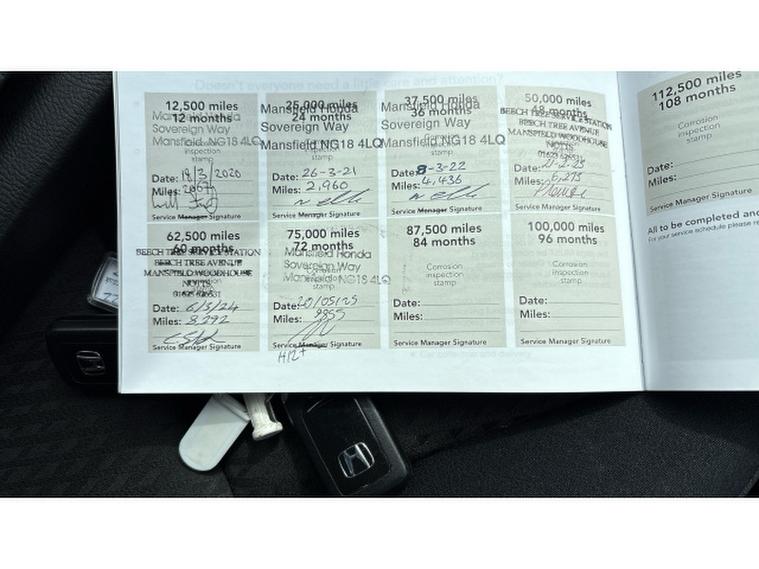 Doesn't everyone need a little care and attention?
12,500 miles
12 months
Mansfield Honda
Sovereign Way
Mansfield NG18 4LQ
inspection
stamp
Date: 18/3/2020
Miles:
Service Manager Signature
25,000 miles
24 months
Mansfield Honda
Sovereign Way
Mansfield NG18 4LQ
stamp
Date: 26-3-21
Miles: 2,960
Service Manager Signature
37,500 miles
36 months
Mansfield Honda
Sovereign Way
Mansfield NG18 4LQ
stamp
Date: 8-3-22
Miles: 4,436
Service Manager Signature
50,000 miles
48 months
BEECH TREE SERVICE STATION
BEECH TREE AVENUE
MANSFIELD WOODHOUSE
NOTTS
Date:
Miles: 6,275
Service Manager Signature
62,500 miles
60 months
BEECH TREE SERVICE STATION
BEECH TREE AVENUE
MANSFIELD WOODHOUSE
NOTTS
Date: 6/3/24
Miles: 8,292
Service Manager Signature
75,000 miles
72 months
Mansfield Honda
Sovereign Way
Mansfield NG18 4LQ
stamp
Date: 20/05/25
Miles: 9855
Service Manager Signature
87,500 miles
84 months
Corrosion
inspection
stamp
Date:
Miles:
Service Manager Signature
100,000 miles
96 months
Corrosion
inspection
stamp
Date:
Miles:
Service Manager Signature
112,500 miles
108 months
Corrosion
inspection
stamp
Date:
Miles:
Service Manager Signature
All to be completed and
For your service schedule please